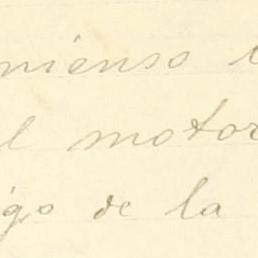 mienso
l motor
go de la